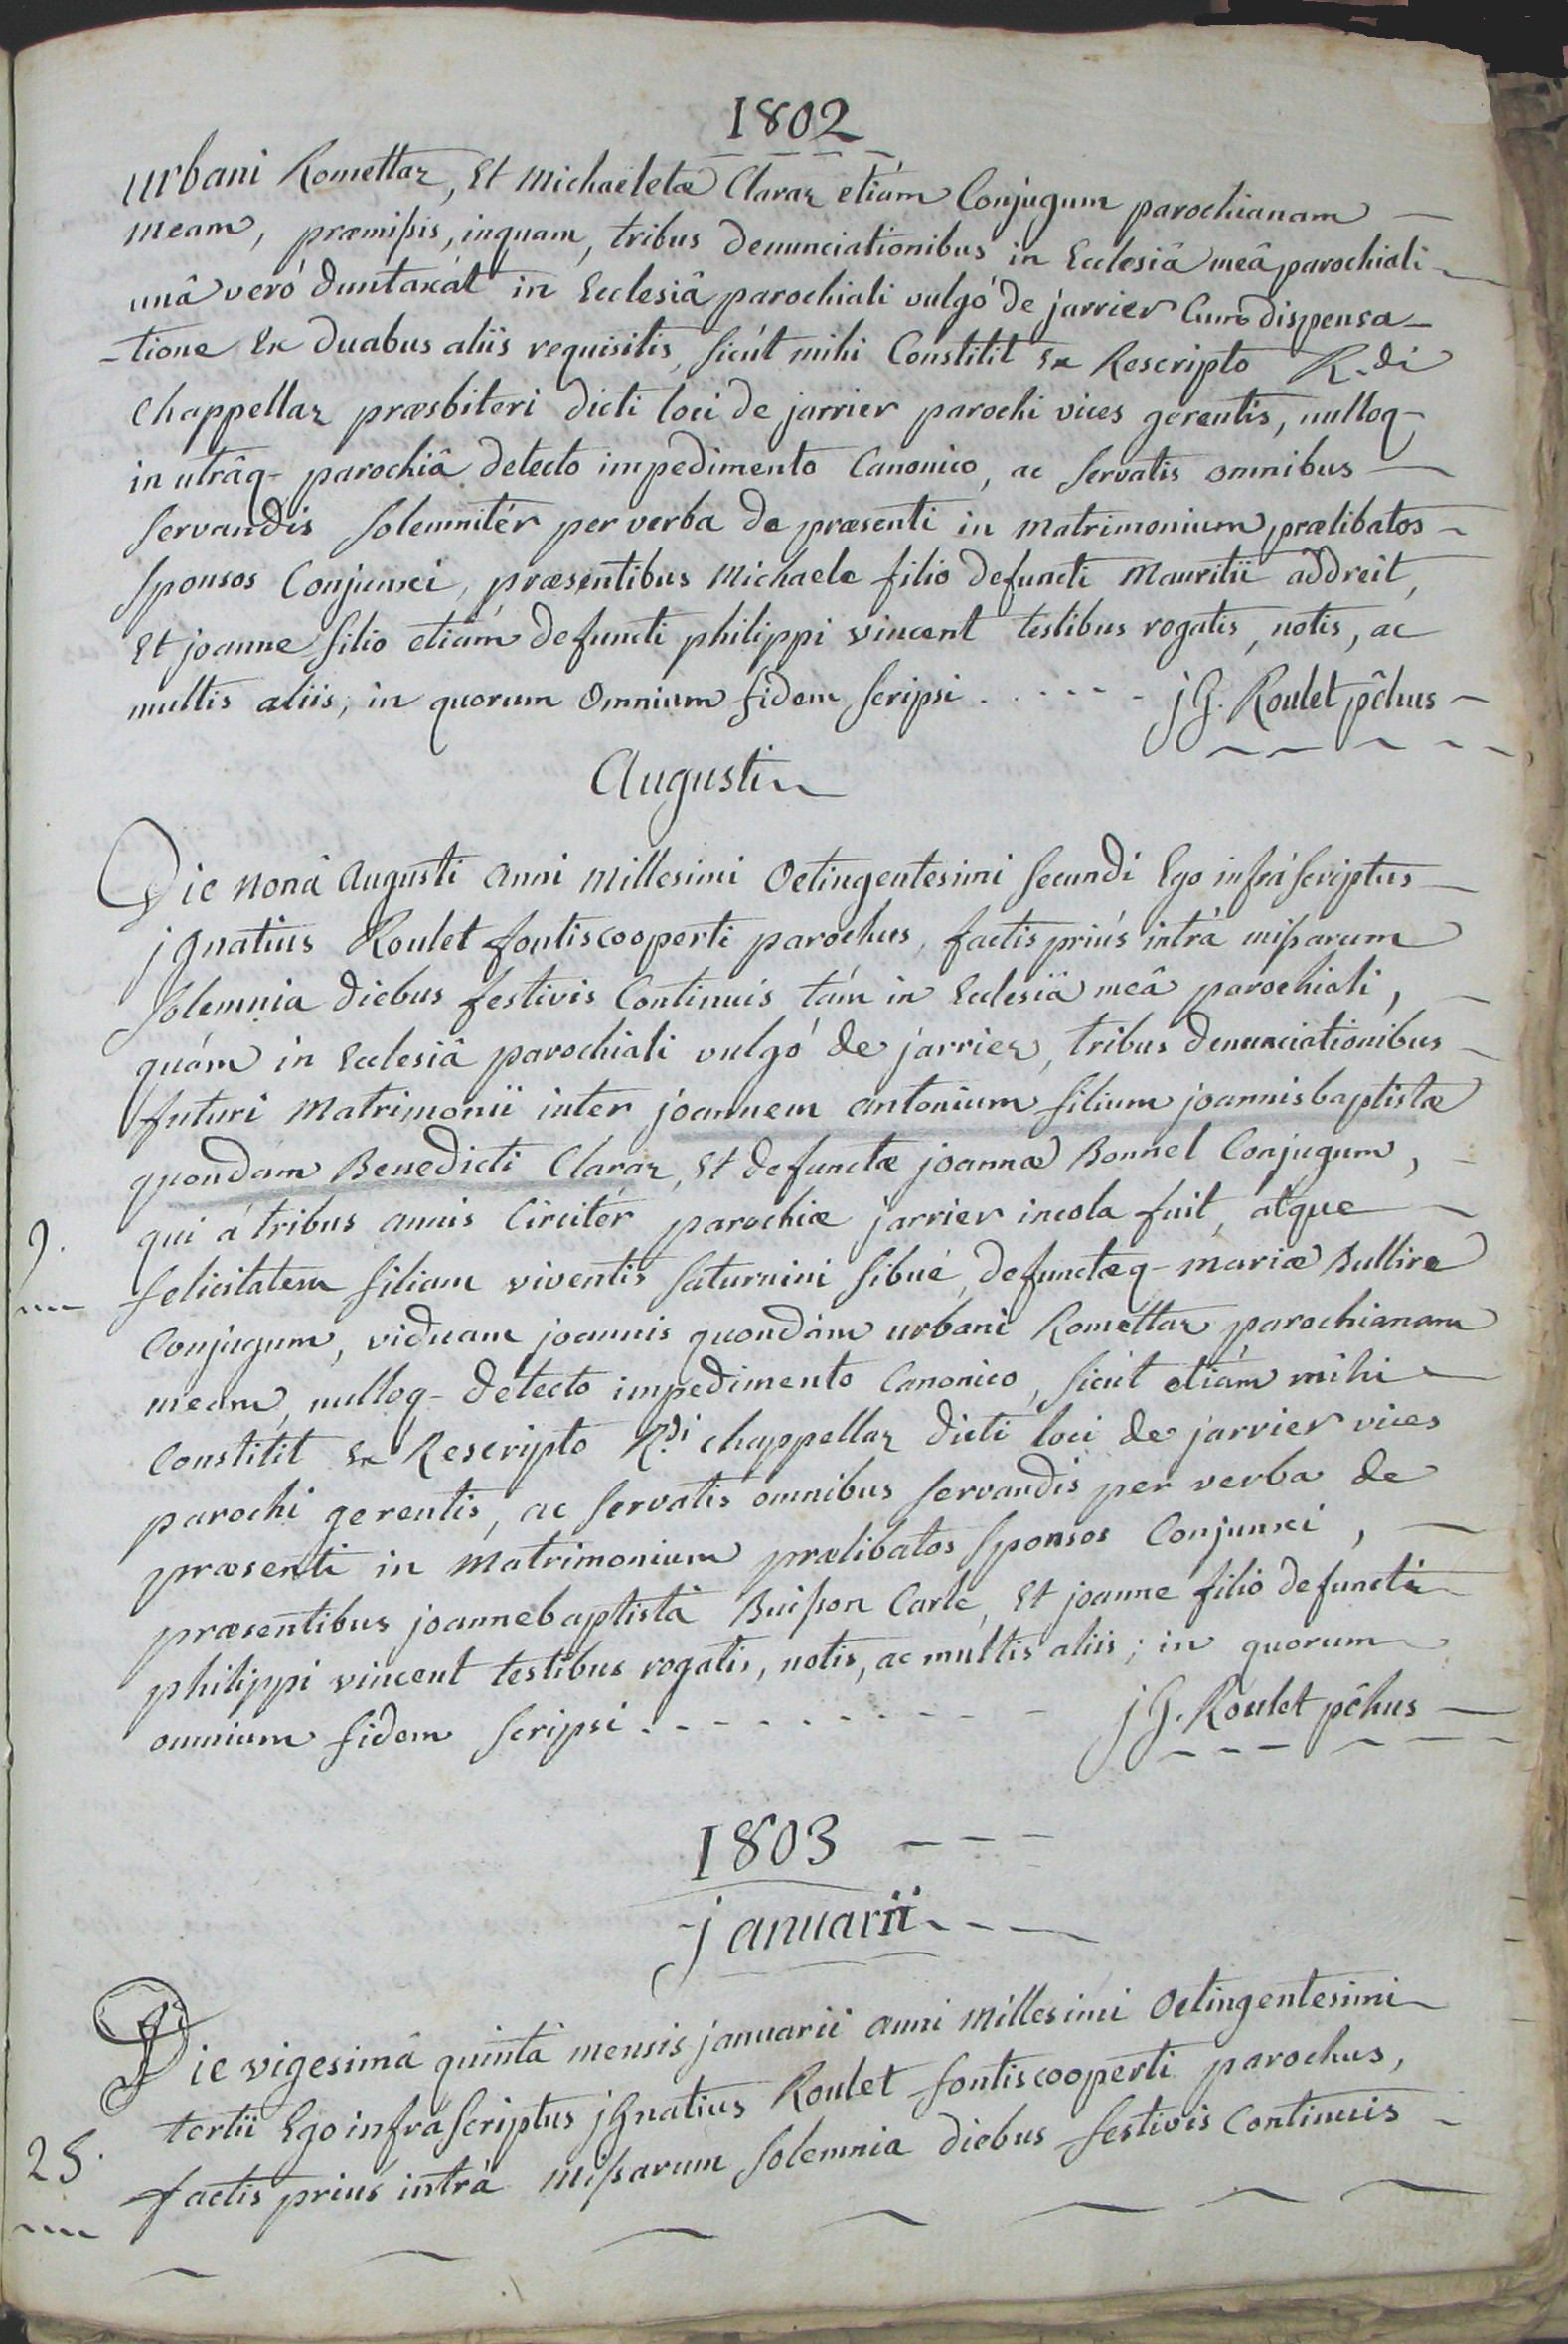 1802
urbani Romettaz, Et Michaeletæ Claraz etiám Conjugum parochianam —
meam, præmißis, inquam, tribus denunciationibus in Ecclesiâ meâ parochiali —
unâ veró duntaxát in Ecclesiâ parochiali vulgó de jarrier Cum dispensa-
-tione Ex duabus aliis requisitis, sicút mihi Constitit Ex Rescripto R.di
Chappellaz præsbiteri dicti loci de jarrier parochi vices gerentis, nulloq-
in utrâq- parochiâ detecto impedimento Canonico, ac servatis omnibus —
servandis solemnitér per verba de præsenti in Matrimonium prælibatos —
sponsos Conjunxi, præsentibus Michaele filio defuncti Mauritii addreit,
Et joanne filio etiám defuncti philippi vincent testibus rogatis, notis, ac
multis aliis; in quorum omnium fidem scripsi . . - - - - jG. Roulet pĉhus —
Augusti
Die nonâ Augusti anni Millesimi Octingentesimi secundi Ego infrá scriptus —
jGnatius Roulet fontiscooperti parochus, factis priús intrá mißarum
solemnia diebus festivis Continuis tám in Ecclesiâ meâ parochiali, —
quám in Ecclesiâ parochiali vulgó de jarrier, tribus denunciationibus —
futuri Matrimonii inter joannem antonium filium joannisbaptistæ
quondám Benedicti Claraz, Et defunctæ joannæ Bonnel Conjugum, —
qui á tribus annis Circitér parochiæ jarrier incola fuit, atque —
9.
felicitatem filiam viventis saturnini sibué, defunctæq- mariæ Bullire
Conjugum, viduam joannis quondám urbani Romettaz parochianam
meam, nulloq- detecto impedimento Canonico, sicút etiám mihi —
Constitit Ex Rescripto R.di chappellaz dicti loci de jarrier vices
parochi gerentis, ac servatis omnibus servandis per verba de
præsenti in Matrimonium prælibatos sponsos Conjunxi, —
præsentibus joannebaptistâ Buißon Carle, Et joanne filio defuncti
philippi vincent testibus rogatis, notis, ac multis aliis; in quorum
omnium fidem scripsi . - - - - - - - - jG. Roulet pĉhus —
1803 - - -
januarii - - —
Die vigesimâ quintâ mensis januarii anni Millesimi Octingentesimi —
tertii Ego infrá scriptus jGnatius Roulet fontiscooperti parochus,
25.
factis priús intrá mißarum solemnia diebus festivis Continuis —